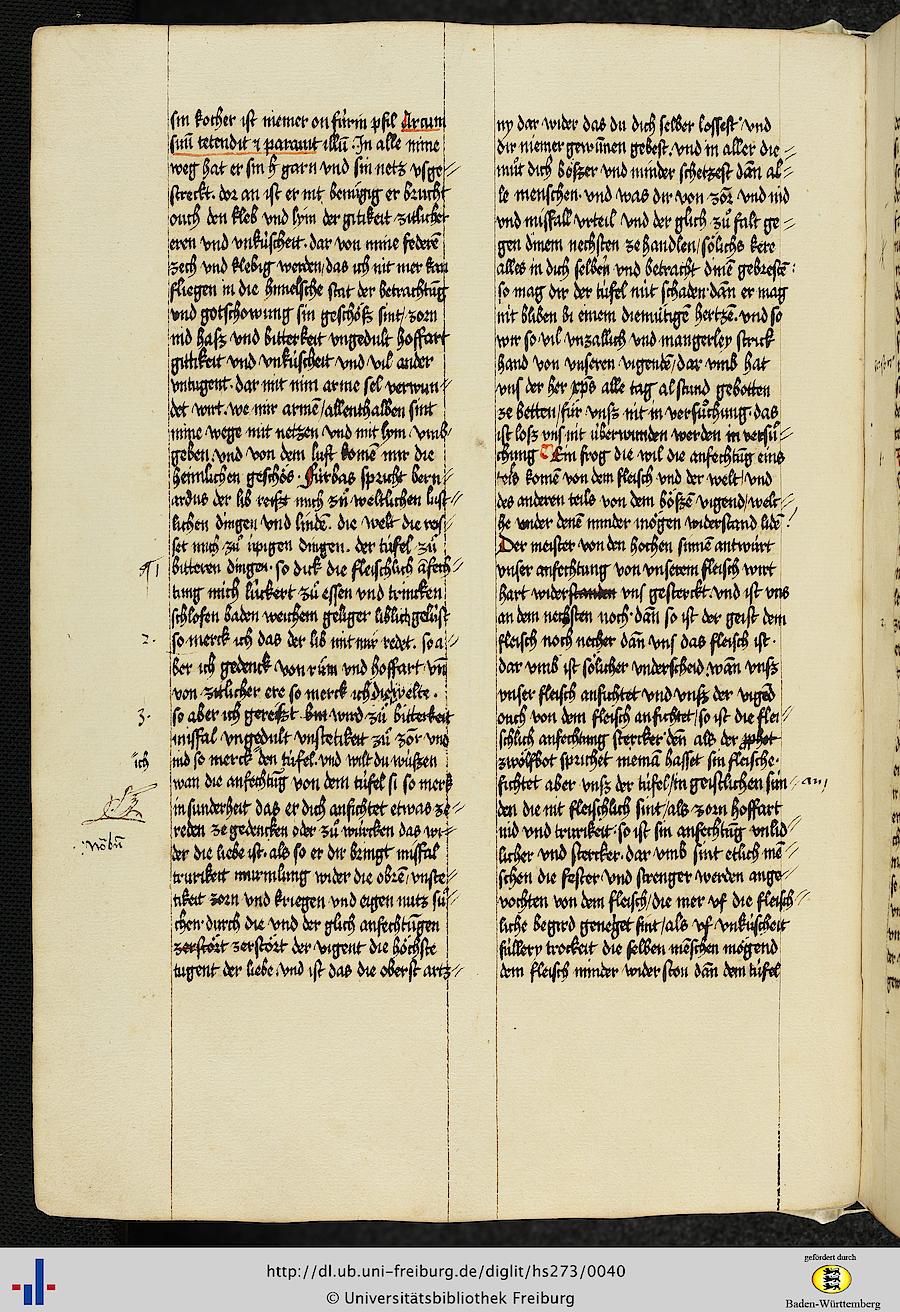 sin kocher ist niemer on fúrin pfil Arcum
suū tetendit ⁊ parauit illū. In alle mine
weg hat er sin garn vnd sin netz vsge⸗
streckt. dor an ist er nit benuͤgig er brucht
ouch den kleb vnd lym der gitikeit zitlicher
eren vnd vnkúscheit. dar von mine federē
zech vnd klebig werden / das ich nit mer kan
fliegen in die himelsche stat der betrachtūg
vnd gotschowung sin geschoͤß sint / zorn
nid haß vnd bitterkeit vngedult hoffart
gittikeit vnd vnkúscheit vnd vil ander
vntugent. dar mit min arme sel verwun⸗
det wirt. we mir armē / allenthalben sint
mine wege mit netzen vnd mit lym vmb⸗
geben. vnd von dem luft komē mir die
heimlichen geschos. Fúrbas spricht bern⸗
ardus der lib reißt mich zuͦ weltlichen lust⸗
lichen dingen vnd lindē. die welt die rei⸗
set mich zuͦ úpigen dingen. der túfel zuͦ
¶ 1 bitteren dingen. so dick die fleischlich āfech⸗
tung mich lúckert zuͦ essen vnd trincken
schlofen baden weichem geliger liblich gelúst
2. so merck ich das der lib mit mir redt. so a⸗
ber ich gedenck von ruͦm vnd hoffart vn̄
von zitlicher ere so merck ich die welte.
3. so aber ich gereitzt bin wird zuͦ bitterkeit
missfal vngedult vnstetikeit zuͦ zorn vnd
ich
nid so merck den túfel. vnd wilt du wússen
wan die anfechtūg von dem túfel si so merk
in sunderheit das er dich anfichtet etwas ze⸗
reden ze gedencken oder zuͦ wúrcken das wi⸗
nōbū
der die liebe ist. als so er dir bringt missfal
trurikeit murmlung wider die obrē / vnste⸗
tikeit zorn vnd kriegen vnd eigen nutz suͦ⸗
chen durch die vnd der glich anfechtūgen
zerstoͤrt zerstoͤrt der vigent die hoͤchste
tugent der liebe. vnd ist das die oberst artz⸗
ny dar wider das du dich selber lossest vnd
dir niemer gewunnen gebest. vnd in aller die⸗
muͤt dich boͤßer vnd minder schetzest dan̄ al⸗
le menschen. vnd was dir von zorn vnd nid
vnd missfall vrteil vnd der glich zuͦ falt ge⸗
gen dinem nechsten ze handlen / soͤlichs kere
alles in dich selben vnd betracht dinē gebresten:
so mag dir der túfel nút schaden. dan̄ er mag
nit bliben bi einem diemuͤtigē hertzē. vnd so
wir so vil vnzallich vnd mangerley strick
hand von vnseren vigendē / dar vmb hat
vns der her xp̄s alle tag al stund gebotten
ze betten / fuͤr vnß nit in versuͦchung. das
ist loß vns nit úberwunden werden in versuͦ⸗
chung Ein frog die wil die anfechtūg eins
teils komē von dem fleisch vnd der welt / vnd
des anderen teils von dem boͤßen vigend / wel⸗
he wider denē minder moͤgen widerstand lidē
Der meister von den hochen sinnē antwúrt
vnser anfechtung von vnserem fleisch wirt
hart widerstanden vns gesterckt. vnd ist vns
an dem nechsten noch. dan̄ so ist der geist dem
fleisch noch necher dan̄ vns das fleisch ist.
dar vmb ist soͤlicher vnderscheid. wan vnß
vnser fleisch anfichtet vnd vnß der vigēd
ouch von dem fleisch anfichtet / so ist die flei⸗
schlich anfechtung stercker den als der pphet
zwoͤlfbot sprichet niemā hasset sin fleische.
fichtet aber vnß der túfel / in geistlichen sún⸗ an
den die nit fleischlich sint / als zorn hoffart
nid vnd trurikeit. so ist sin anfechtūg vnlid⸗
licher vnd stercker. dar vmb sint etlich mē⸗
schen die fester vnd strenger werden ange⸗
vochten von dem fleisch / die mer vf die fleisch⸗
liche begird geneiget sint / als vf vnkúscheit
fúllery trockeit die selben mēschen moͤgend
dem fleisch minder wider ston dan̄ dem túfel
http://dl.ub.uni-freiburg.de/diglit/hs273/0040
© Universitätsbibliothek Freiburg
gefördert durch
Baden-Württemberg